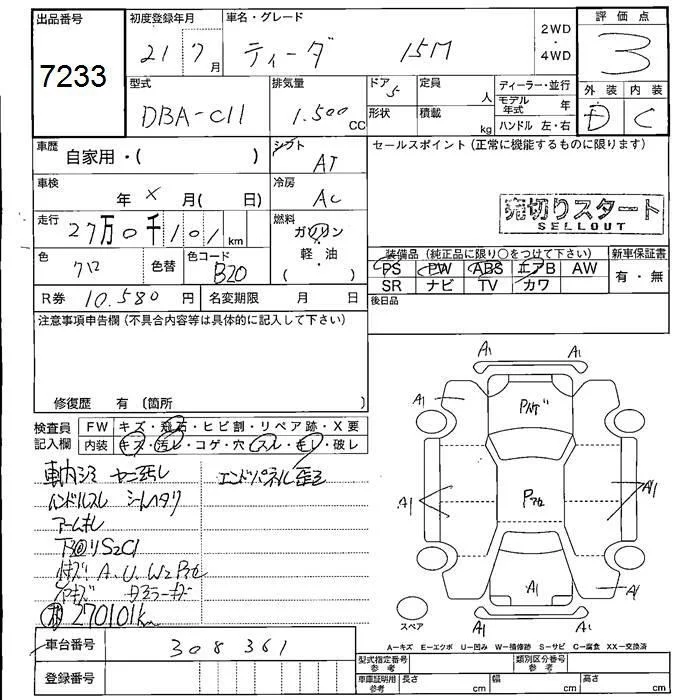 出品番号
7233
初度登録年月
21 7 月
車名・グレード
ティーダ 15M
2WD
・
4WD
評価点
3
型式
DBA-C11
排気量
1.500 CC
ドア 5
形状
定員 人
積載 kg
ディーラー・並行
モデル年式 年
ハンドル 左・右
外装 内装
D C
車歴
自家用・( )
シフト
AT
セールスポイント(正常に機能するものに限ります)
車検
年 × 月( 日)
冷房
AC
売切りスタート
SELLOUT
走行
27万0千101km
燃料
ガソリン
・
軽・油
( )
色
クロ
色替
色コード
B20
装備品(純正品に限り○をつけて下さい)
新車保証書
PS PW ABS エアB AW
SR ナビ TV カワ
有・無
R券 10.580 円
名変期限 月 日
後日品
注意事項申告欄(不具合内容等は具体的に記入して下さい)
修復歴 有 〔箇所 〕
検査員記入欄
FW キズ・飛石・ヒビ割・リペア跡・X要
内装 キズ・汚レ・コゲ・穴・スレ・キレ・破レ
車内シミ ヤニ汚レ
エンドパネル歪
ハンドルスレ シートヘタリ
アームキレ
下回りS2C1
270101km
A1 A1
A1 A1
PNT
A1 A1
P
A1 A1
A1 A1
スペア
A-キズ E-エクボ U-凹み W-補修跡 S-サビ C-腐食 XX-交換済
車台番号
308361
登録番号
型式指定番号 参考
類別区分番号 参考
車庫証明用 参考
長さ cm
幅 cm
高さ cm